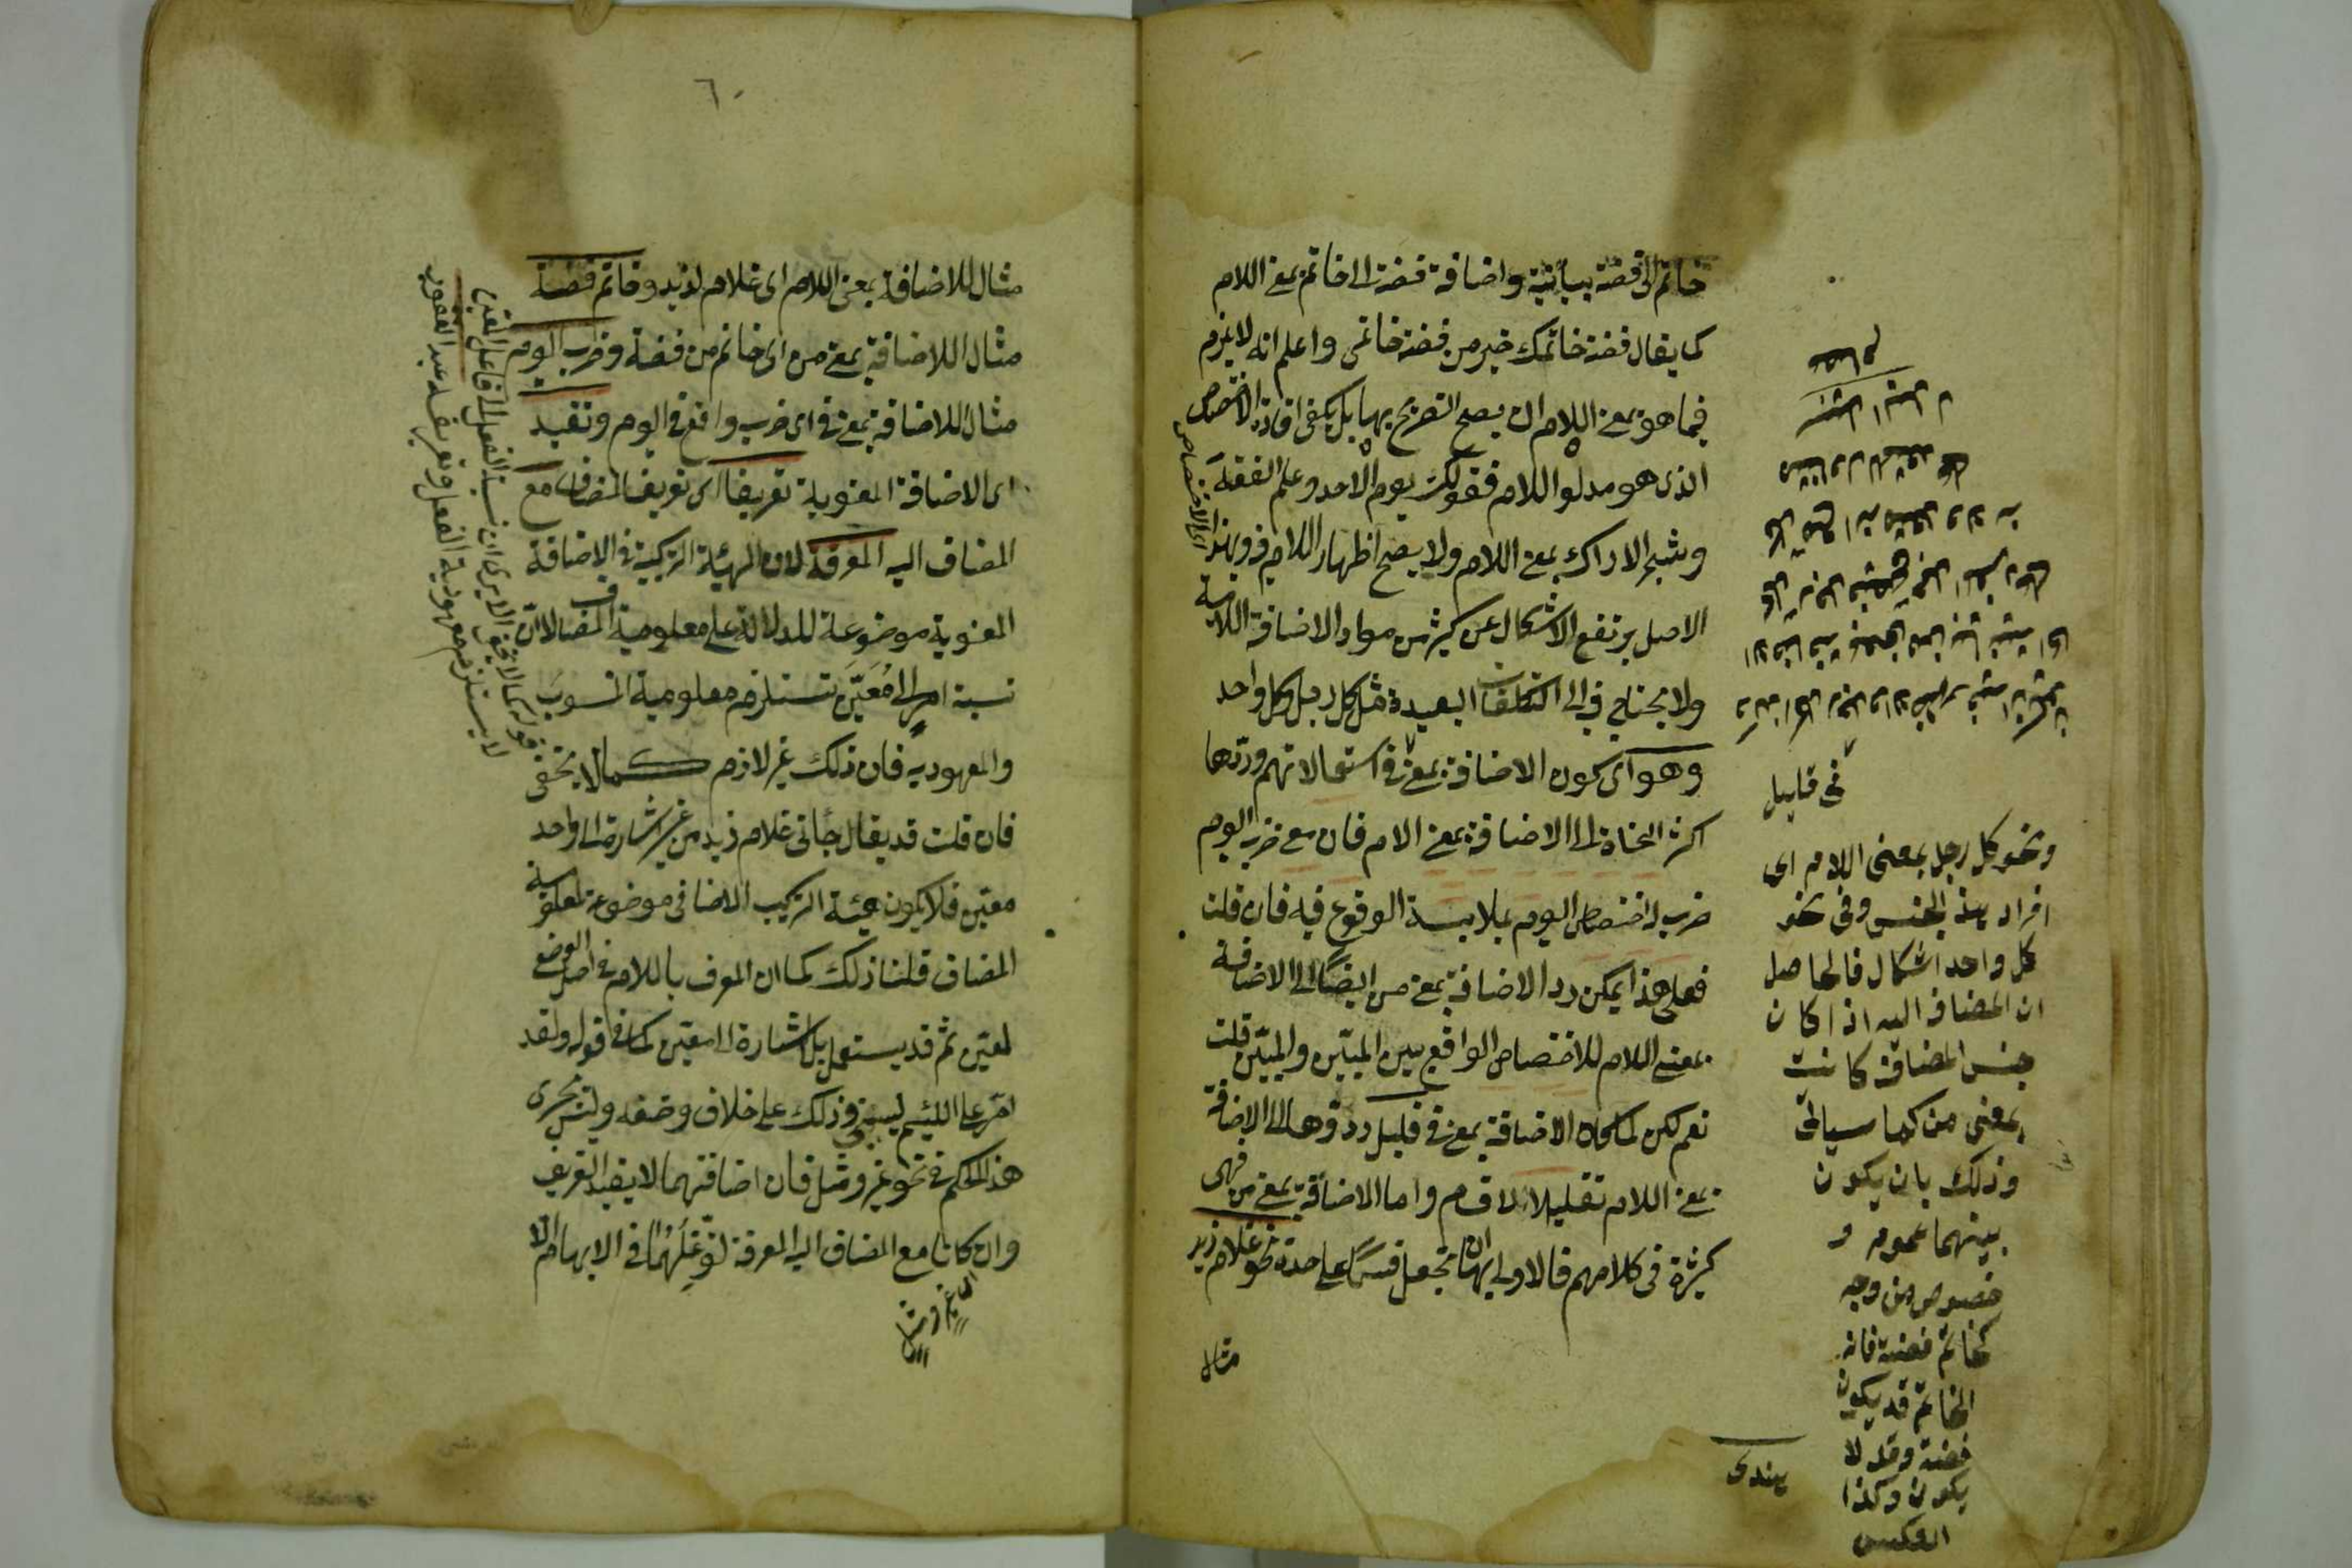 خاتم الى فضة بيانية واضافة فضة الى خاتم بمعنى اللام
كما يقال فضة خاتمك خير من فضة خاتمى واعلم انه لا يلزم
فيما هو بمعنى اللام ان يصح التصريح بها بل يكفى افادة الاختصاص
الذى هو مدلول اللام فقولك يوم الاحد وعلم الفقه
وشجر الاراك بمعنى اللام ولا يصح اظهار اللام فيه وبهذا
الاصل يرتفع الاشكال عن كثير من مواد الاضافة اللامية
ولا يحتاج فيه الى التكلفات البعيدة مثل كل رجل وكل واحد
وهو اى كون الاضافة بمعنى فى قليل فى استعمالاتهم وردّها
اكثر النحاة الى الاضافة بمعنى الام فان معنى ضرب اليوم
ضرب له اختصاص اليوم بملابسة الوقوع فيه فان قلت
فعلى هذا يمكن رد الاضافة بمعنى من ايضًا الى الاضافة
بمعنى اللام للاختصاص الواقع بين المبيّن والمبيّن قلت
نعم لكن لما كان الاضافة بمعنى فى قليل ردّوها الى الاضافة
بمعنى اللام تقليلا للاقسام واما الاضافة بمعنى من فهى
كثيرة فى كلامهم فالاولى بها ان تجعل قسمًا على حدة نحو غلام زيد
مثال
اى الاختصاص
عصام
فى قليل
ونحو كل رجل بمعنى اللام اى
افراد هذا الجنس وفى نحو
كل واحد اشكال فالحاصل
ان المضاف اليه اذا كان
جنس المضاف كانت
بمعنى من كما سيأتى
وذلك بان يكون
بينهما عموم و
خصوص من وجه
كخاتم فضة فانه
الخاتم قد يكون
فضة وقد لا
يكون وكذا
العكس
هندى
٦٠
مثال للاضافة بمعنى اللام اى غلام لزيد وخاتم فضة
مثال للاضافة بمعنى من اى خاتم من فضة وضرب اليوم
مثال للاضافة بمعنى فى اى ضرب واقع فى اليوم وتفيد
اى الاضافة المعنوية تعريفا اى تعريف المضاف مع
المضاف اليه المعرفة لان الهيئة التركيبية فى الاضافة
المعنوية موضوعة للدلالة على معلومية المضاف لا ان
نسبة امر الى مُعَيَّن تستلزم معلومية المنسوب
والمعهودية فان ذلك غير لازم كما لا يخفى
فان قلت قد يقال جاءنى غلام زيد من غير اشارة الى واحد
معيّن فلا يكون هيئة التركيب الاضافى موضوعة لمعلومية
المضاف قلنا ذلك كما ان المعرف باللام فى اصل الوضع
لمعيّن ثم قد يستعمل بلا اشارة الى معيّن كما فى قوله ولقد
امرّ على اللئيم يسبنى وذلك على خلاف وضعه وليس يجرى
هذا الحكم فى نحو غير ومثل فان اضافتهما لا يفيد التعريف
وان كانا مع المضاف اليه المعرفة لتوَغّلِهِما فى الابهام الا
اى غير ومثل
لا يستلزم معهودية الفعل وتعريفه عبد الغفور